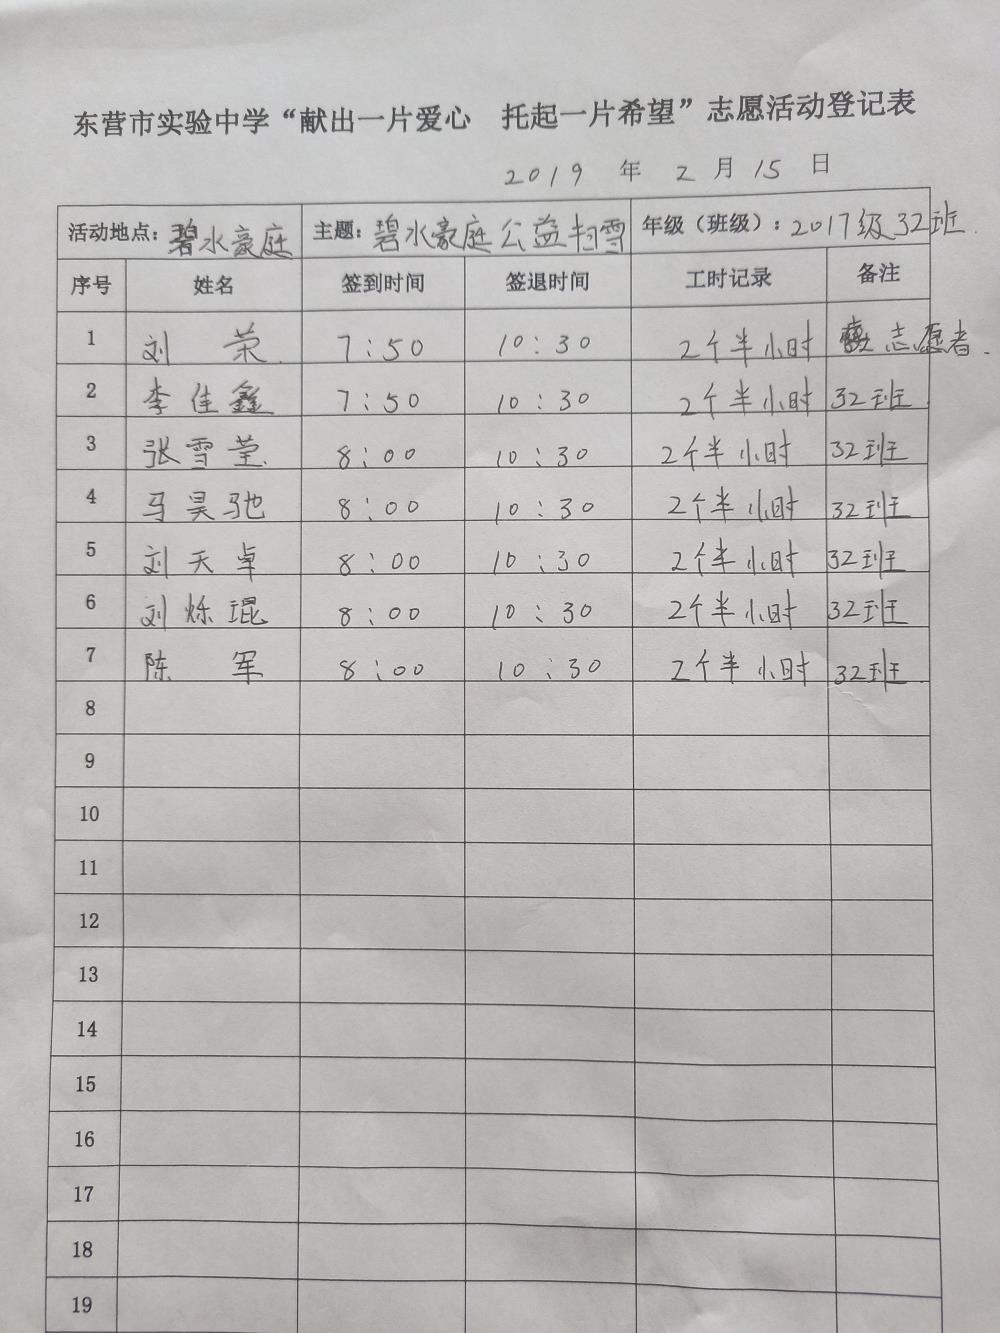 东营市实验中学“献出一片爱心 托起一片希望”志愿活动登记表
2019 年 2 月 15 日
活动地点：碧水豪庭 主题：碧水豪庭公益扫雪 年级（班级）：2017级32班.
序号 姓名 签到时间 签退时间 工时记录 备注
1 刘 荣. 7:50 10:30 2个半小时 志愿者.
2 李佳鑫 7:50 10:30 2个半小时 32班.
3 张雪莹. 8:00 10:30 2个半小时 32班
4 马昊驰 8:00 10:30 2个半小时 32班
5 刘天卓 8:00 10:30 2个半小时 32班
6 刘烁琨 8:00 10:30 2个半小时 32班
7 陈 军 8:00 10:30 2个半小时 32班.
8
9
10
11
12
13
14
15
16
17
18
19